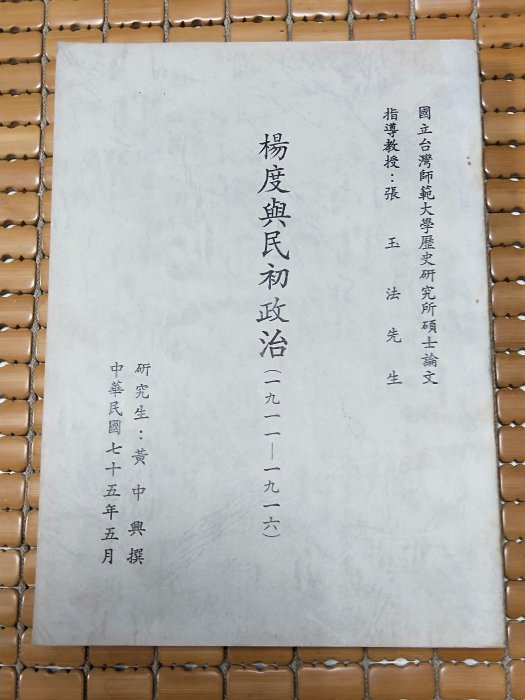 國立台灣師範大學歷史研究所碩士論文
指導教授：張玉法先生
楊度與民初政治（一九一一—一九一六）
研究生：黃中興撰
中華民國七十五年五月